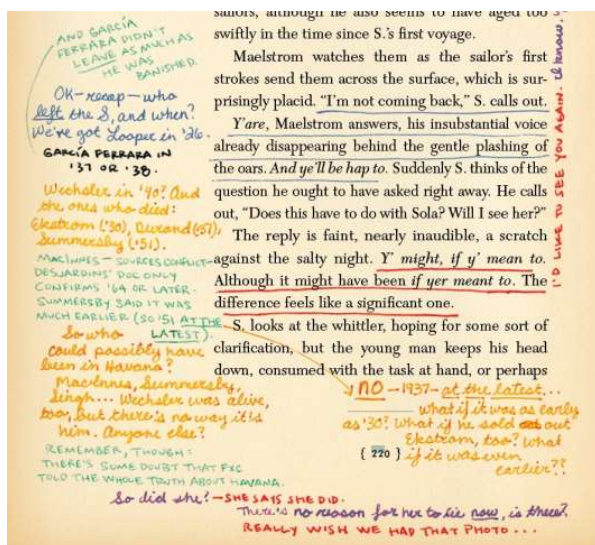 sailors, although he also seems to have aged too
swiftly in the time since S.'s first voyage.
Maelstrom watches them as the sailor's first
strokes send them across the surface, which is sur-
prisingly placid. "I'm not coming back," S. calls out.
Y'are, Maelstrom answers, his insubstantial voice
already disappearing behind the gentle plashing of
the oars. And ye'll be hap to. Suddenly S. thinks of the
question he ought to have asked right away. He calls
out, "Does this have to do with Sola? Will I see her?"
The reply is faint, nearly inaudible, a scratch
against the salty night. Y' might, if y' mean to.
Although it might have been if yer meant to. The
difference feels like a significant one.
S. looks at the whittler, hoping for some sort of
clarification, but the young man keeps his head
down, consumed with the task at hand, or perhaps
{ 220 }
AND GARCÍA
FERRARA DIDN'T
LEAVE AS MUCH AS
HE WAS
BANISHED.
OK—recap—who
left the S, and when?
We've got Looper in '26.
GARCÍA FERRARA IN
'37 OR '38.
Wechsler in '40? And
the ones who died:
Ekstrom ('30), Durand ('37),
Summersby ('51).
MACINNES—SOURCES CONFLICT—
DESJARDINS' DOC ONLY
CONFIRMS '64 OR LATER.
SUMMERSBY SAID IT WAS
MUCH EARLIER (SO '51 AT THE
LATEST).
So who
could possibly have
been in Havana?
MacInnes, Summersby,
Singh... Wechsler was alive,
too, but there's no way it's
him. Anyone else?
REMEMBER, THOUGH:
THERE'S SOME DOUBT THAT FXC
TOLD THE WHOLE TRUTH ABOUT HAVANA.
So did she!—SHE SAYS SHE DID.
There's no reason for her to lie now, is there?
REALLY WISH WE HAD THAT PHOTO...
NO—1937—at the latest...
what if it was as early
as '30? What if he sold out
Ekstrom, too? What
if it was even
earlier??
I'D LIKE TO SEE YOU AGAIN. I know.